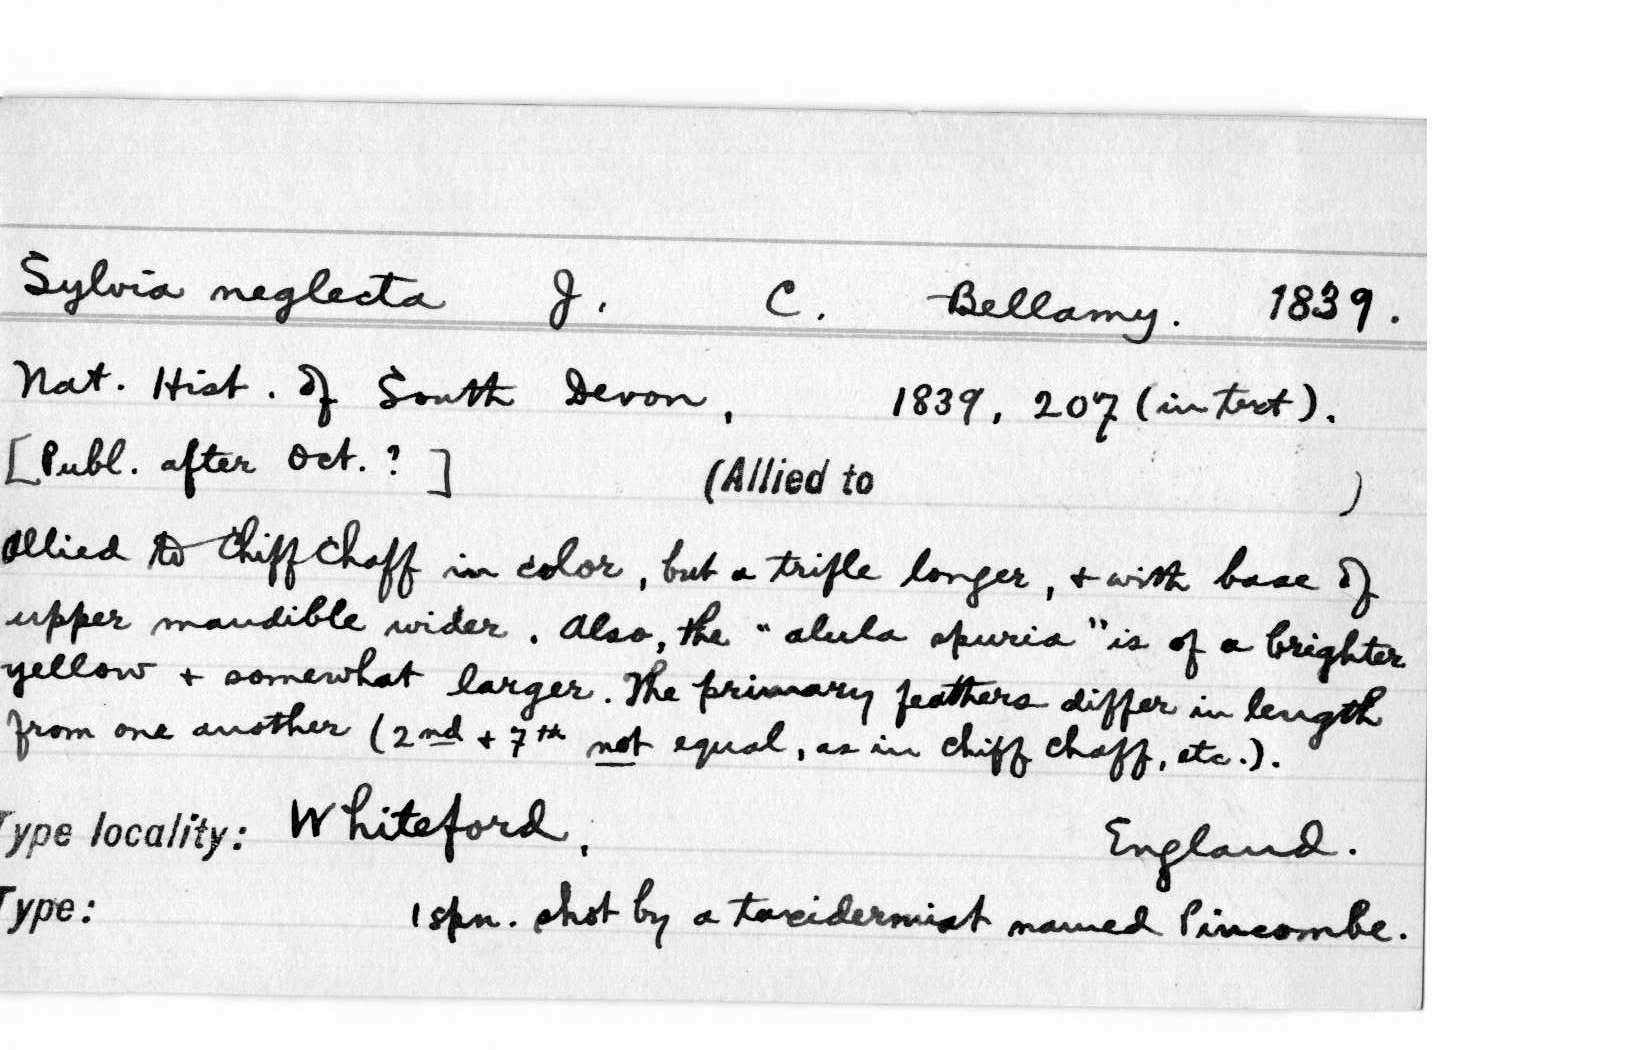 Sylvia neglecta J. C. Bellamy. 1839.
Nat. Hist. of South Devon, 1839, 207 (in text).
[Publ. after Oct. ?] (Allied to )
Allied to Chiff Chaff in color, but a trifle longer, + with base of
upper mandible wider. Also, the "alula spuria" is of a brighter
yellow + somewhat larger. The primary feathers differ in length
from one another (2nd + 7th not equal, as in Chiff Chaff, etc.).
Type locality: Whiteford, England.
Type: 1 spn. shot by a taxidermist named Pincombe.